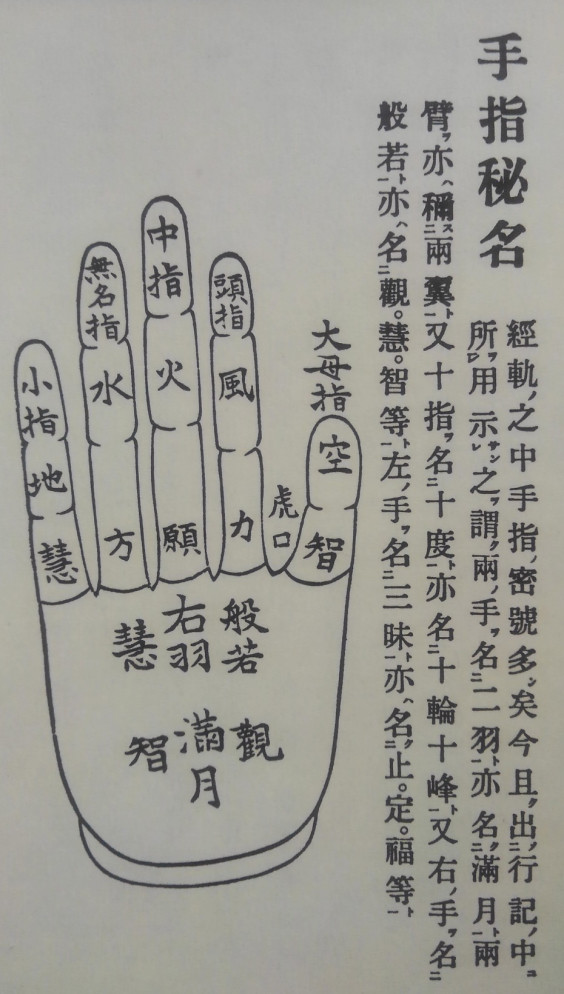 手指秘名
經軌ノ之中手指ノ密號多シ矣今且ク出ニ行記ノ中ニ
所ヲ一レ用示サンレ之ヲ謂ク兩ノ手ヲ名ニ二羽ト一亦名ニ滿月ト一兩
臂ヲ亦ハ稱スニ兩翼ト一又十指ヲ名ニ十度ト一亦名ニ十輪十峰ト一又右ノ手ヲ名ニ
般若ト一亦ハ名ニ觀。慧。智等ト一左ノ手ヲ名ニ三昧ト一亦ハ名ニ止。定。福等ト一
大母指
空
智
虎口
頭指
風
力
中指
火
願
無名指
水
方
小指
地
慧
般若
右羽
慧
觀
滿月
智